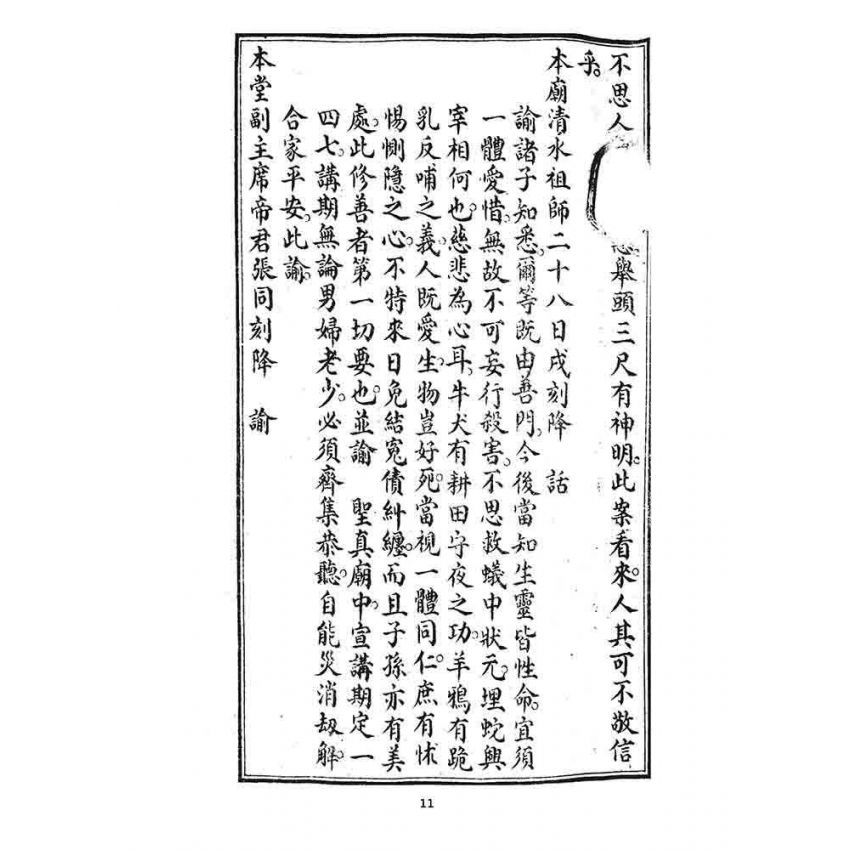 不思人舉頭三尺有神明。此案看來。人其可不敬信
乎。
本廟清水祖師二十八日戌刻降　話
諭諸子知悉。爾等既由善門。今後當知生靈皆性命。宜須
一體愛惜。無故不可妄行殺害。不思救蟻中狀元。埋蛇興
宰相何也。慈悲為心耳。牛犬有耕田守夜之功。羊鴉有跪
乳反哺之義。人既愛生。物豈好死。當視一體同仁。庶有怵
惕惻隱之心。不特來日免結冤債糾纏。而且子孫亦有美
處。此修善者第一切要也。並諭　聖真廟中。宣講期定一
四七。講期無論男婦老少。必須齊集恭聽。自能災消劫解。
合家平安。此諭。
本堂副主席帝君張同刻降　諭
11